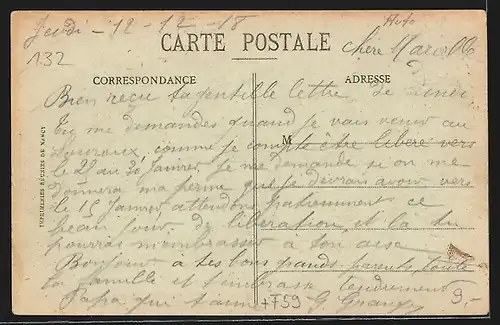 Jeudi - 12 - 12 - 18
Auto
132
CARTE POSTALE
Chère Marcelle
CORRESPONDANCE
ADRESSE
Bien reçu ta gentille lettre de
Tu me demandes quand je vais venir au
M
comme je compte être libéré vers
le 20 au 30 Janvier je me demande si on me
donnera ma perme que je devrais avoir vers
le 15 Janvier attendons patiemment ce
beau jour de libération et là tu
pourras m'embrasser à ton aise
Bonjour à tes bons grands parents toute
la famille et t'embrasse tendrement
Papa qui t'aime
G
+F59
9.-
IMPRIMERIES RÉUNIES DE NANCY